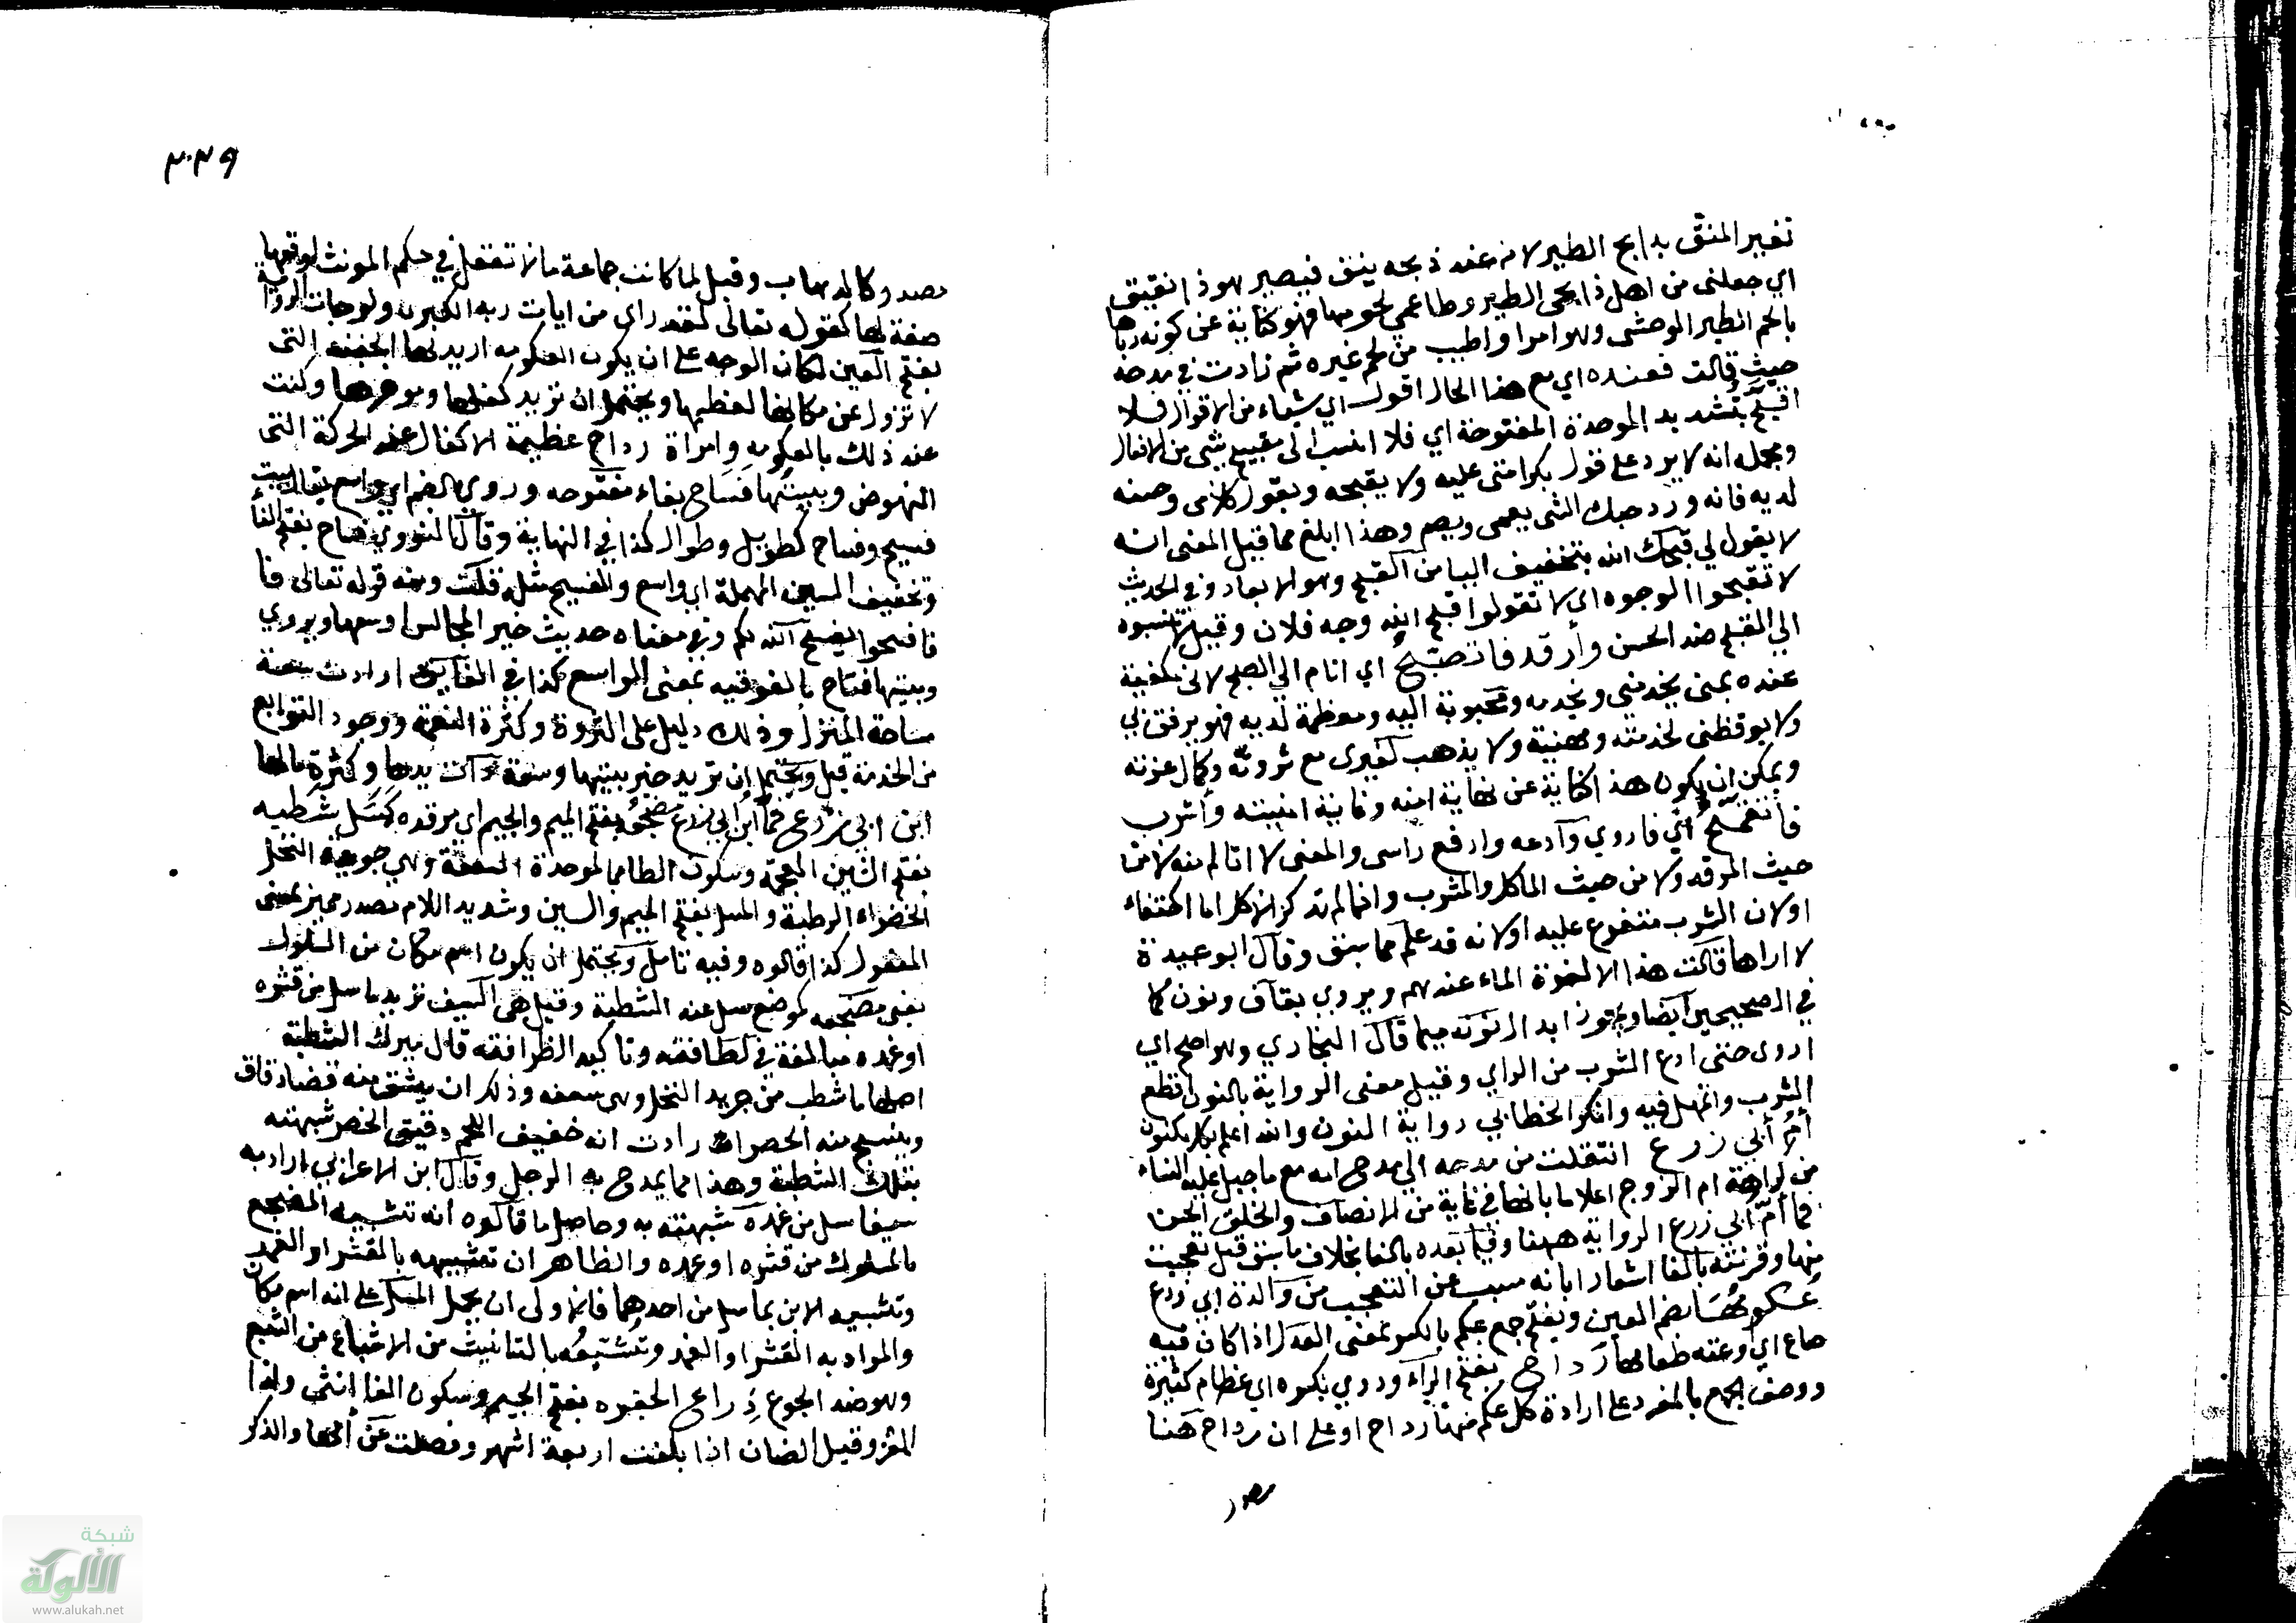 تفسير المنق بذابح الطير لانه عند ذبحه ينق فيصير هو ذا نقيق
اي جعلني من اهل ذابحي الطير وطاعمي لحومها فهو كناية عن كونه رباها
بلحم الطير الوحشي وهو امرا واطيب من لحم غيره ثم زادت في مدحه
حيث قالت فعنده اي مع هذا الحال اقول اي شياء من الاقوال فلا
اقبح بتشديد الموحدة المفتوحة اي فلا انسب الى تقبيح شي من الافعال
ومجمله انه لا يرد على قولي بكرامتي عليه ولا يقبحه ويقول كلامي وحسنه
لديه فانه ورد حبك الشي يعمي ويصم وهذا ابلغ مما قيل المعنى انه
لا يقول لي قبحك الله بتخفيف البا من القبح وهو الابعاد وفي الحديث
لا تقبحوا الوجوه اي لا تقولوا قبح الله وجه فلان وقيل لا تنسبوه
الى القبح ضد الحسن وأرقد فاتصبح اي انام الى الصبح لاني مكفية
عنده بمن يخدمني ويخدمه ومحبوبة اليه ومعظمة لديه فهو يرفق بي
ولا يوقظني لخدمته ومهنته ولا يذهب لغيري مع ثروته وكمال عزته
ويمكن ان يكون هذا كناية عن نهاية امنه وغاية امنيته وأشرب
فأتقمح اي فاروي وأدعه وارفع راسي والمعنى لا اتالم منه لا من
حيث المرقد ولا من حيث الماكل والمشرب وانما لم تذكر الاكل اما اكتفاء
اولان الشرب متفرع عليه اولانه قد علم مما سبق وقال ابو عبيدة
لا اراها قالت هذا الا لعزة الماء عندهم ويروي بقاف ونون كما
في الصحيحين أيضا ويجوز ابدال نونه ميما قال البخاري وهو اصح اي
اروى حتى ادع الشرب من الراي وقيل معنى الرواية بالنون اقطع
الشرب واتمهل فيه وانكر الخطابي رواية النون والله اعلم
أم أبي زرع انتقلت من مدحه الى مدح امه مع ما جبل عليه النساء
من كراهة ام الزوج اعلاما بانها في غاية من الانصاف والخلق الحسن
فما أم أبي زرع الرواية ههنا وفيما بعده بالفا بخلاف ما سبق قيل تعجبت
منها وقرنته بالفا اشعارا بانه سبب عن التعجب من والدة ابي زرع
عكومها بضم العين وبفتح جمع عكم بالكسر بمعنى العدل اذا كان فيه
متاع اي اوعية طعامها رداح بفتح الراء وروي بكسره اي عظام كثيرة
ووصف الجمع بالمفرد على ارادة كل عكم منها رداح او على ان رداح هنا
مصدر
٣٣٩
مصدر وكالذهاب وقيل لما كانت جماعة ما لا تعقل في حكم المونث لوقعها
صفة لها كقوله تعالى لقد راى من ايات ربه الكبرى ولو جات الرواية
بفتح العين لكان الوجه على ان يكون العكوم اريد بها الجفنة التي
لا تزول عن مكانها لعظمها ويحتمل ان تريد كفلها وموخرها وكنت
عند ذلك بالعكوم وامراة رداح عظيمة الاكفال عند الحركة التي
النهوض وبيتها فساح بفاء مفتوحه وروي بالضم اي واسع يقال بيت
فسيح وفساح كطويل وطوال كذا في النهاية وقال النووي فساح بفتح الفا
وتخفيف السين المهملة اي واسع والفسيح مثله قلت ومنه قوله تعالى فا
فافسحوا يفسح الله لكم وفي معناه حديث خير المجالس اوسعها ويروي
وبيتها فتاح بالفوقيه بمعنى الواسع كذا في الفايق ارادت سعة
مساحة المنزل وذلك دليل على الثروة وكثرة النعمة ووجود التوابع
من الخدمة قيل ويحتمل ان تريد خير بيتها وسعة ذات يدها وكثرة مالها
ابن ابي زرع فما ابن ابي زرع مضجعه بفتح الميم والجيم اي مرقده كمسل شطبه
بفتح الشين المعجمة وسكون الطا الموحدة السعفة وهي جريدة النخل
الخضراء الرطبة والمسل بفتح الميم والسين وتشديد اللام مصدر ميمي بمعنى
المفعول كذا قالوه وفيه تامل ويحتمل ان يكون اسم مكان من السلول
يعني مضجعه كموضع سل عنه الشطبة وقيل هي السيف تريد ما سل من قشره
او غمده مبالغة في لطافته وتاكيد الظرافته قال ميرك الشطبة
اصلها ما شطب من جريد النخل وهي سعفه وذلك ان يشق منه قضبان دقاق
وينسج منه الحصر ارادت انه خفيف اللحم دقيق الخصر شبهته
بتلك الشطبة وهذا مما يمدح به الرجل وقال ابن الاعرابي ارادبه
سيفا سل من غمده شبهته به وحاصل ما قالوه أنه تشبيه المضجع
بالمسلول من قشره او غمده والظاهر ان تشبيهه بالقشر او الغمد
وتشبيه الابن بما سل من احدهما فالاولى ان يحمل المسل على انه اسم مكان
والمراد به القشر او الغمد وتشبعه بالتانيث من الاشباع من الشبع
وهو ضد الجوع ذراع الجفره بفتح الجيم وسكون الفا انثى ولد
المعز وقيل الضان اذا بلغت اربعة اشهر وفصلت عن أمها والذكر
شبكة
الألوكة
www.alukah.net